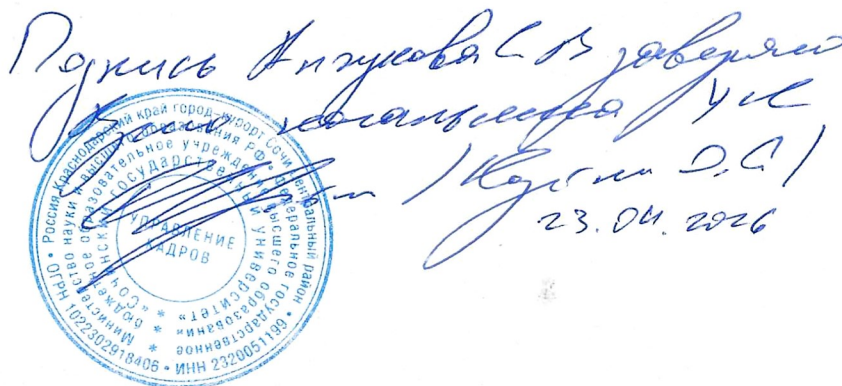 Подпись С В заверяю
начальника УК
/ О.С /
23.04.2026
• Россия Краснодарский край город-курорт Сочи Центральный район • ОГРН 1022302918406 • ИНН 2320051199
Министерство науки и высшего образования РФ • Федеральное государственное
бюджетное образовательное учреждение высшего образования
«Сочинский государственный университет»
УПРАВЛЕНИЕ
КАДРОВ